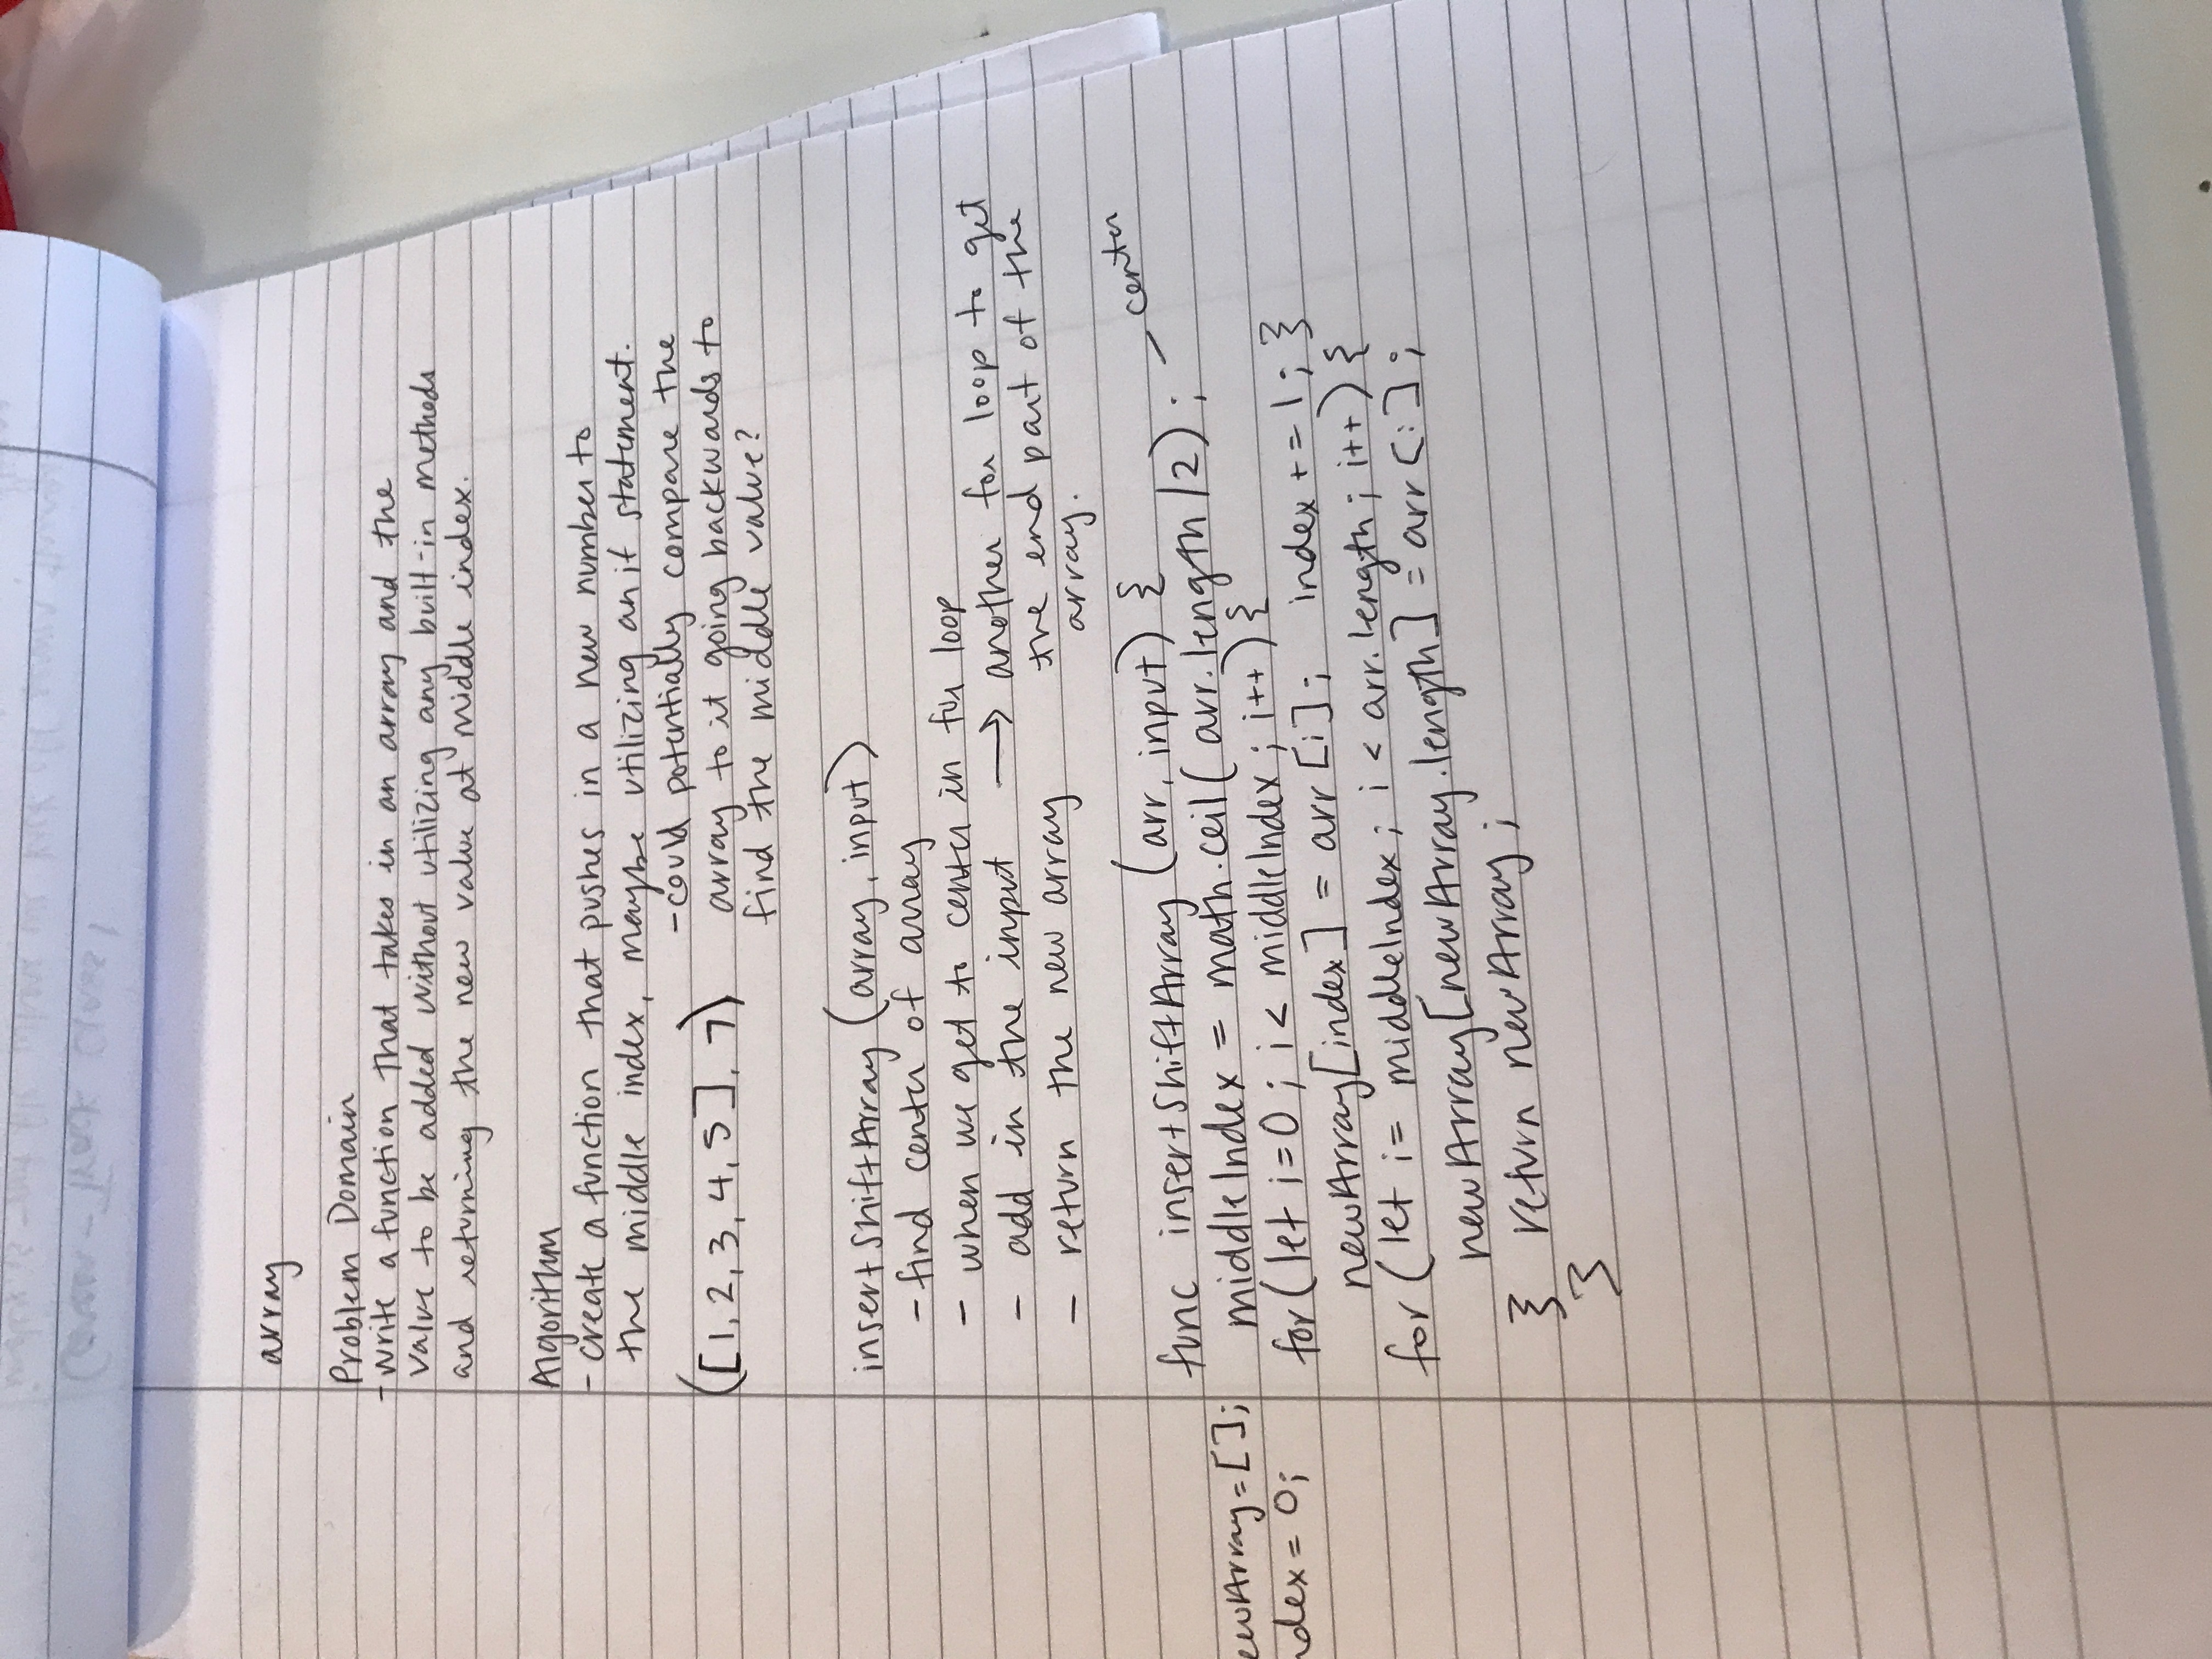 array
Problem Domain
- write a function that takes in an array and the
value to be added without utilizing any built-in methods
and returning the new value at middle index.
Algorithm
- create a function that pushes in a new number to
the middle index, maybe utilizing an if statement.
- could potentially compare the
([1, 2, 3, 4, 5], 7)
array to it going backwards to
find the middle value?
insertShiftArray (array, input)
- find center of array
- when we get to center in for loop
- add in the input → another for loop to get
the end part of the
- return the new array
array.
func insertShiftArray (arr, input) { - center
middleIndex = math.ceil( arr.length /2) ;
ewArray = [ ];
for ( let i=0 ; i < middleIndex ; i++ ) {
ndex = 0;
newArray[index] = arr [i] ; index += 1 ; }
for ( let i = middleIndex ; i < arr.length ; i++ ) {
newArray[newArray.length] = arr [i] ;
} return newArray ;
}